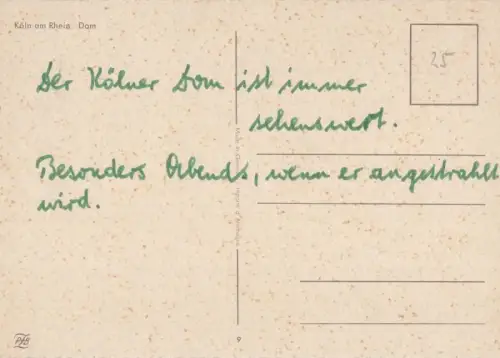 Köln am Rhein Dom
25
Der Kölner Dom ist immer
sehenswert.
Besonders Abends, wenn er angestrahlt
wird.
9